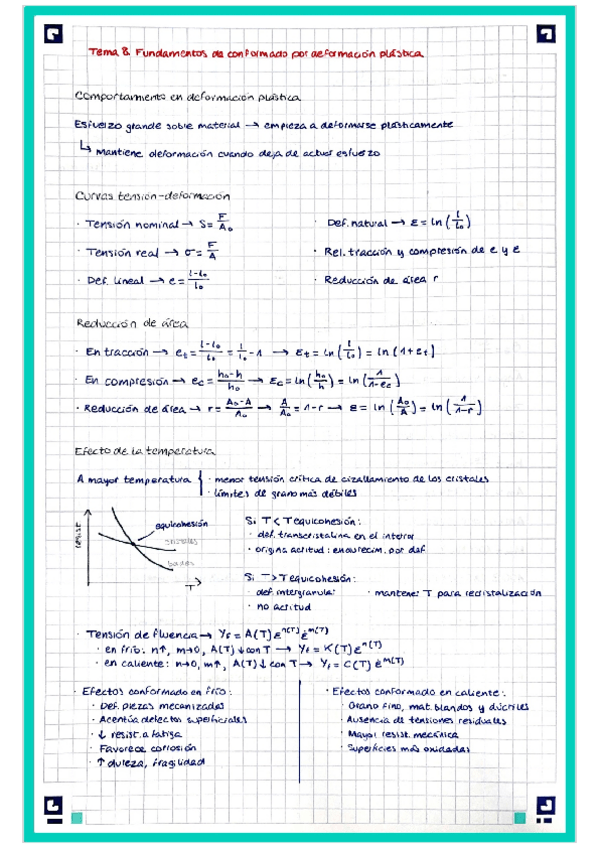 Tema 8. Fundamentos de conformado por deformación plástica
Comportamiento en deformación plástica
Esfuerzo grande sobre material → empieza a deformarse plásticamente
↳ Mantiene deformación cuando deja de actuar esfuerzo
Curvas tensión-deformación
· Tensión nominal → S = F/A₀
· Tensión real → σ = F/A
· Def. lineal → e = (l-l₀)/l₀
· Def. natural → ε = ln(l/l₀)
· Rel. tracción y compresión de e y ε
· Reducción de área r
Reducción de área
· En tracción → eₜ = (l-l₀)/l₀ = l/l₀ - 1 → εₜ = ln(l/l₀) = ln(1+eₜ)
· En compresión → e꜀ = (h₀-h)/h₀ → ε꜀ = ln(h₀/h) = ln(1/(1-e꜀))
· Reducción de área → r = (A₀-A)/A₀ → A/A₀ = 1-r → ε = ln(A₀/A) = ln(1/(1-r))
Efecto de la temperatura
A mayor temperatura { · menor tensión crítica de cizallamiento de los cristales
· límites de grano más débiles
resist.
equicohesión
cristales
bordes
T
Si T < T equicohesión:
· def. transcristalina en el interior
· origina acritud: endurecim. por def
Si T > T equicohesión:
· def. intergranular
· mantener T para recristalización
· no acritud
· Tensión de fluencia → Yf = A(T) ε^n(T) ε̇^m(T)
· en frío: n↑, m→0, A(T)↓ con T → Yf = K(T) ε^n(T)
· en caliente: n→0, m↑, A(T)↓ con T → Yf = C(T) ε̇^m(T)
· Efectos conformado en frío:
· Def. piezas mecanizadas
· Acentúa defectos superficiales
· ↓ resist. a fatiga
· Favorece corrosión
· ↑ dureza, fragilidad
· Efectos conformado en caliente:
· Grano fino, mat. blandos y dúctiles
· Ausencia de tensiones residuales
· Mayor resist. mecánica
· Superficies más oxidadas